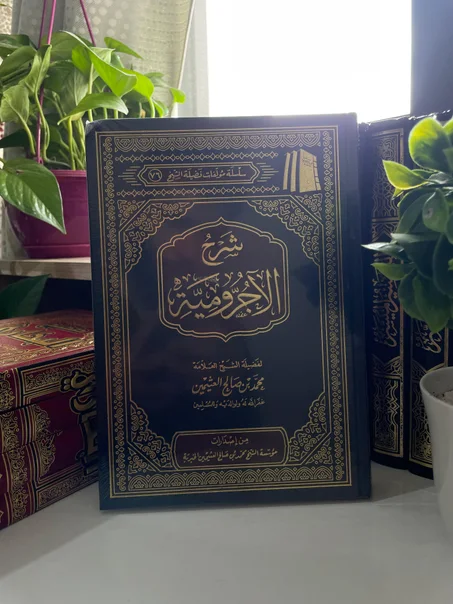 سلسلة مؤلفات فضيلة الشيخ (٧٦)
شرح
الآجرومية
لفضيلة الشيخ العلامة
محمد بن صالح العثيمين
غفر الله له ولوالديه وللمسلمين
من إصدارات
مؤسسة الشيخ محمد بن صالح العثيمين الخيرية